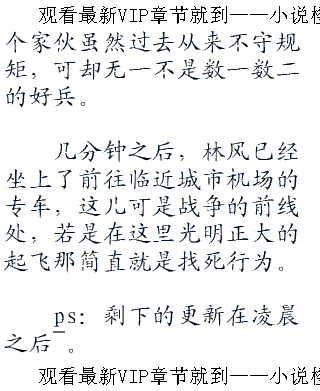 观看最新VIP章节就到——小说
个家伙虽然过去从来不守规
矩，可却无一不是数一数二
的好兵。
几分钟之后，林风已经
坐上了前往临近城市机场的
专车，这儿可是战争的前线
处，若是在这里光明正大的
起飞那简直就是找死行为。
ps：剩下的更新在凌晨
之后。
观看最新VIP章节就到——小说